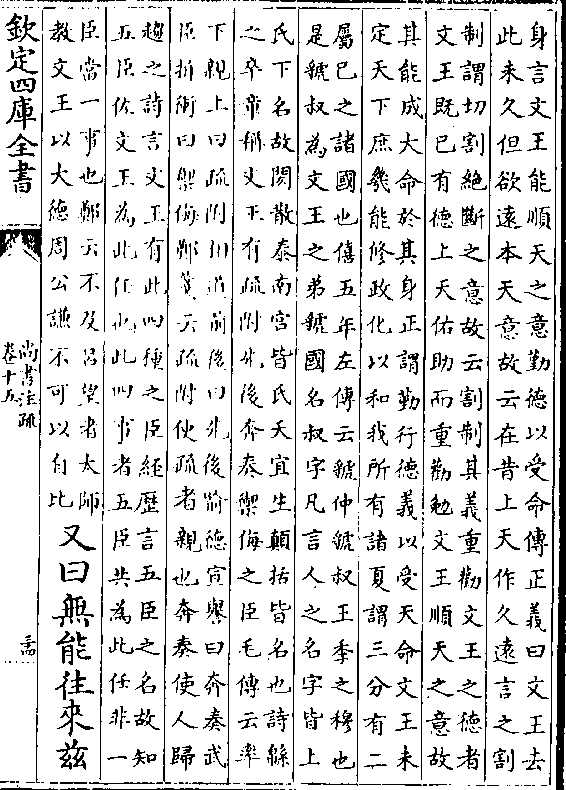 身言文王能順天之意勤德以受命傳正義曰文王去
此未久但欲遠本天意故云在昔上天作久遠言之割
制謂切割絶斷之意故云割制其義重勸文王之德者
文王既已有德上天佑助而重勸勉文王順天之意故
其能成大命於其身正謂勤行德義以受天命文王未
定天下庶幾能修政化以和我所有諸夏謂三分有二
屬已之諸國也僖五年左傳云虢仲虢叔王季之穆也
是虢叔為文王之弟虢國名叔字凡言人之名字皆上
氏下名故閎散泰南宮皆氏夭宜生顛括皆名也詩緜
之卒章稱文王有疏附先後奔奏禦侮之臣毛傳云率
下親上曰疏附相道前後曰先後喻德宣譽曰奔奏武
臣折衝曰禦侮鄭箋云疏附使疏者親也奔奏使人歸
趨之詩言文王有此四種之臣經歷言五臣之名故知
五臣佐文王為此任也此四事者五臣共為此任非一
臣當一事也鄭云不及呂望者太師
教文王以大德周公謙不可以自比
又曰無能往來茲
欽定四庫全書
尚書注疏
卷十五